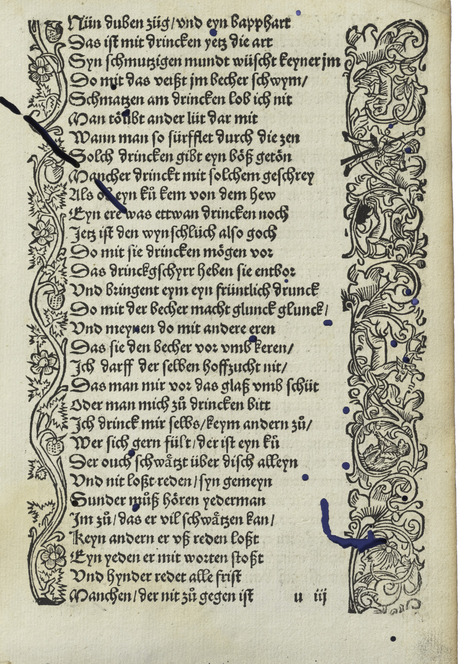 Nün duben züg/vnd eyn bapphart
Das ist mit drincken yetz die art
Syn schmutzigen mundt wüscht keyner jm
Do mit das veißt jm becher schwym/
Schmatzen am drincken lob ich nit
Man töubt ander lüt dar mit
Wann man so sürfflet durch die zen
Solch drincken gibt eyn böß getön
Mancher drinckt mit solchem geschrey
Als ob eyn kü kem von dem hew
Eyn ere was ettwan drincken noch
Jetz ist den wynschlüch also goch
Do mit sie drincken mögen vor
Das drinckgschyrr heben sie entbor
Vnd bringent eym eyn früntlich drunck
Do mit der becher macht glunck glunck/
Vnd meynen do mit andere eren
Das sie den becher vor vmb keren/
Jch darff der selben hoffzucht nit/
Das man mir vor das glaß vmb schüt
Oder man mich zů drincken bitt
Jch drinck mir selbs/keym andern zů/
Wer sich gern fült/der ist eyn kü
Der ouch schwätzt über disch alleyn
Vnd nit loßt reden/syn gemeyn
Sunder můß hören yederman
Jm zů/das er vil schwätzen kan/
Keyn andern er vß reden loßt
Eyn yeden er mit worten stoßt
Vnd hynder redet alle frist
Manchen/der nit zů gegen ist u iij